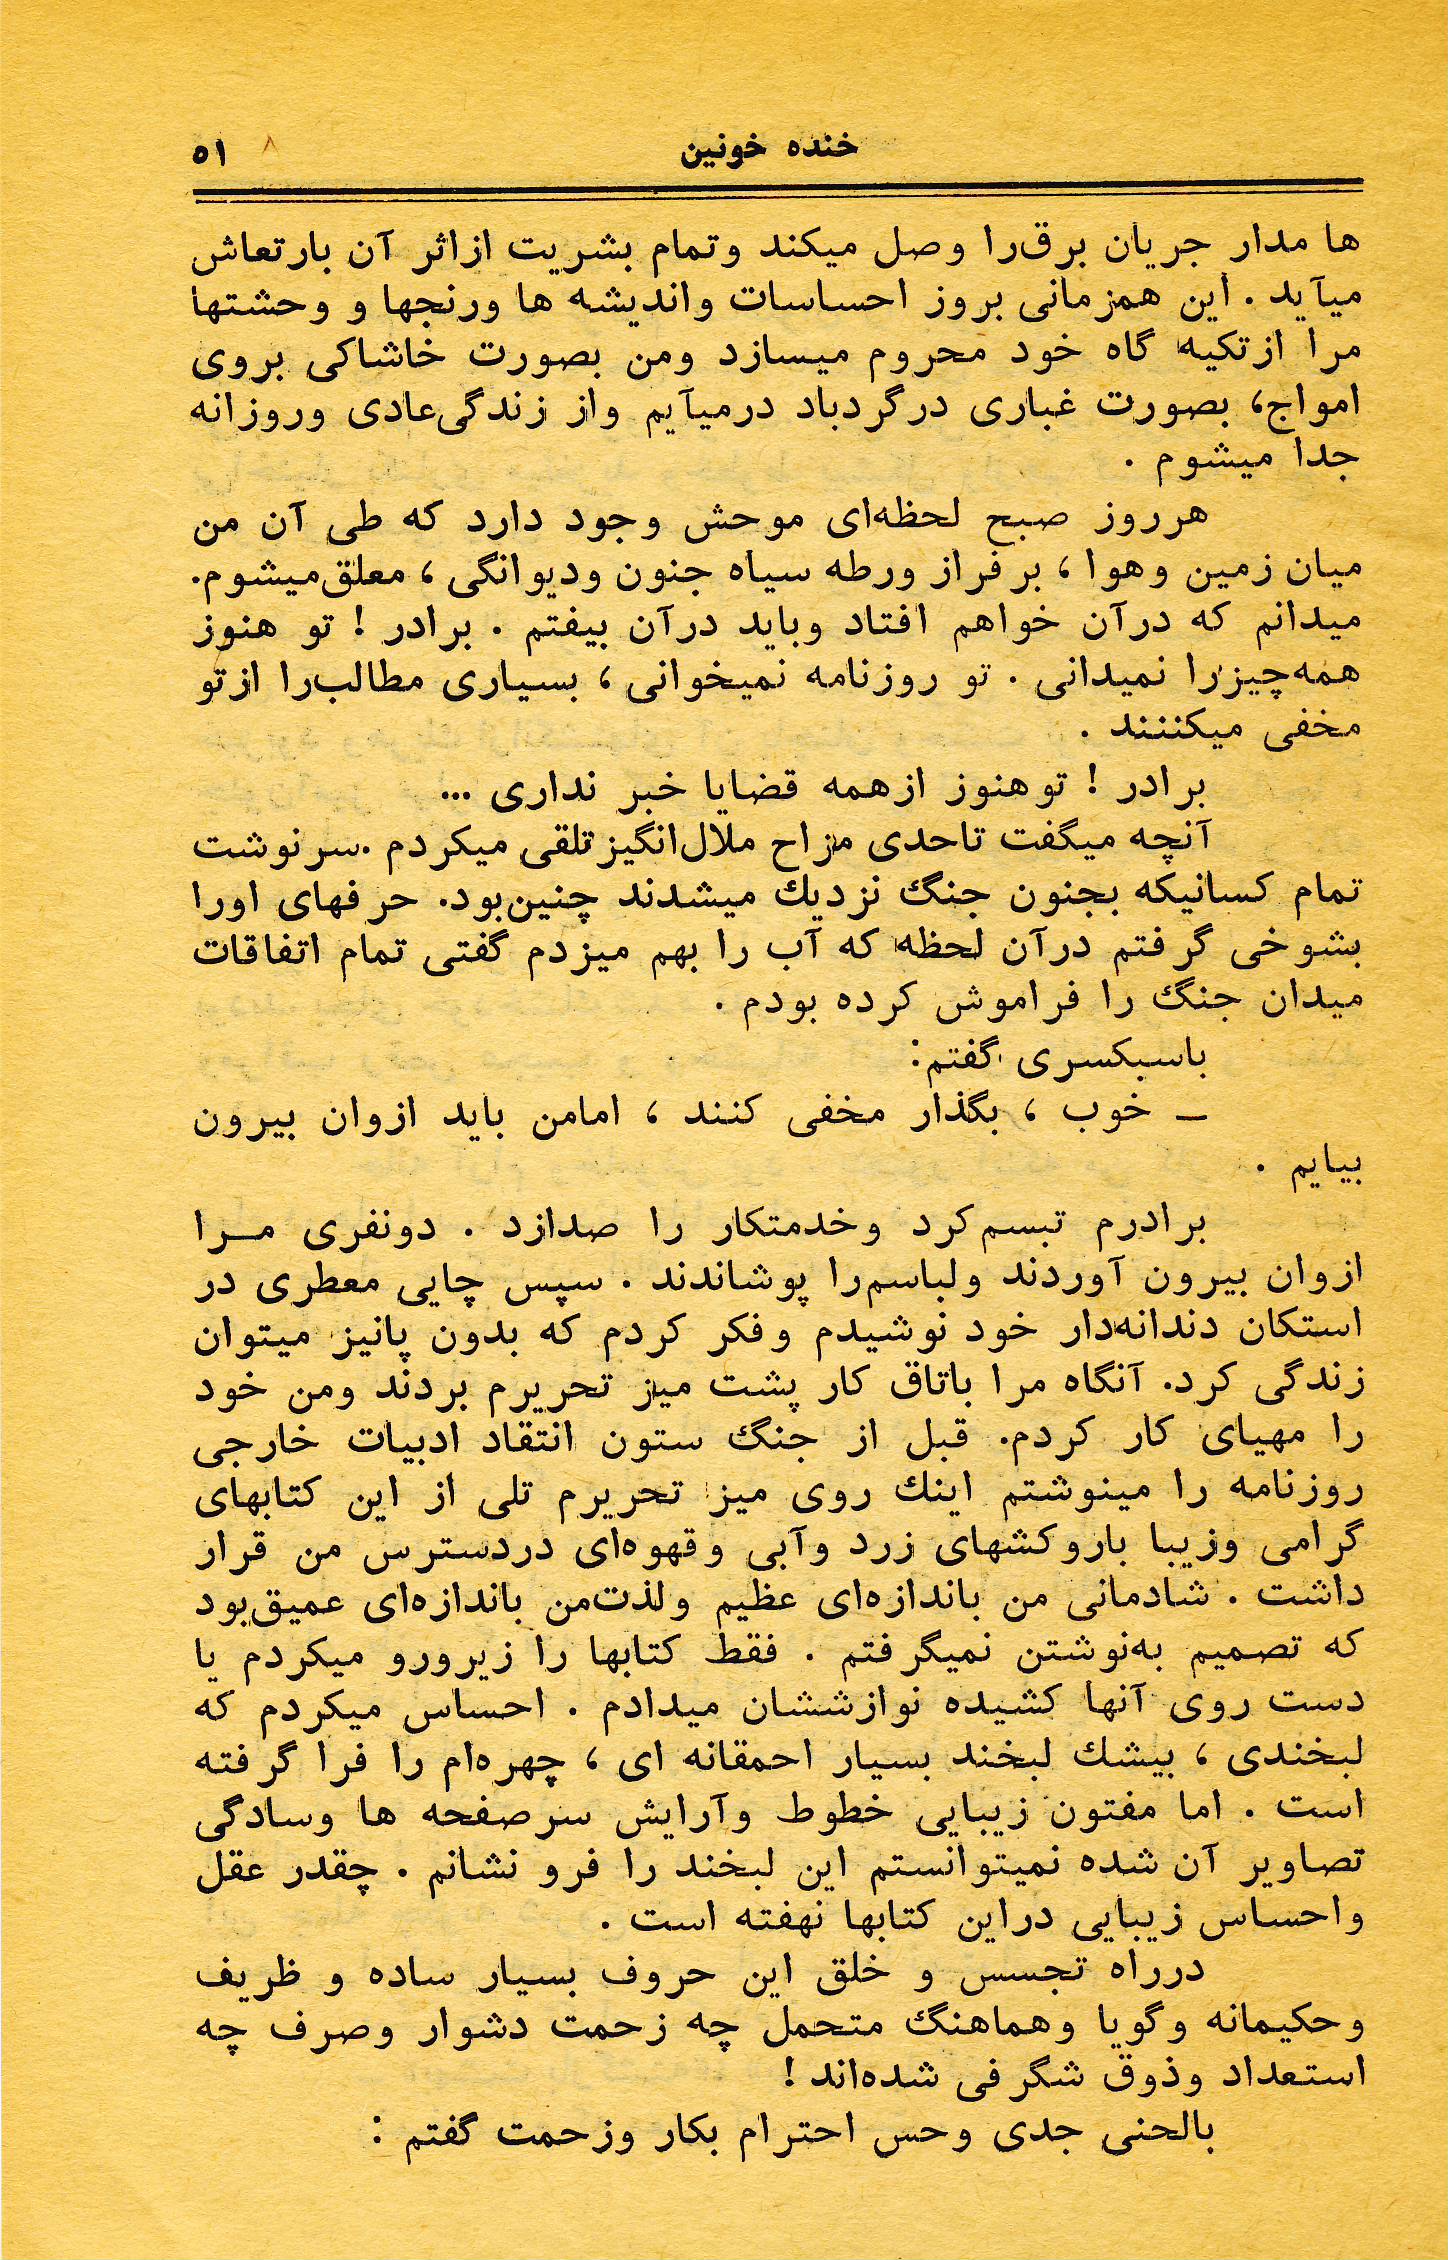 خنده خونین
۵۱
ها مدار جریان برق‌را وصل میکند وتمام بشریت ازاثر آن بارتعاش
میآید . این همزمانی بروز احساسات واندیشه ها ورنجها و وحشتها
مرا ازتکیه گاه خود محروم میسازد ومن بصورت خاشاکی بروی
امواج، بصورت غباری درگردباد درمیآیم واز زندگی‌عادی وروزانه
جدا میشوم .
هرروز صبح لحظه‌ای موحش وجود دارد که طی آن من
میان زمین وهوا ، برفراز ورطه سیاه جنون ودیوانگی ، معلق‌میشوم.
میدانم که درآن خواهم افتاد وباید درآن بیفتم . برادر ! تو هنوز
همه‌چیزرا نمیدانی . تو روزنامه نمیخوانی ، بسیاری مطالب‌را ازتو
مخفی میکنند .
برادر ! توهنوز ازهمه قضایا خبر نداری ...
آنچه میگفت تاحدی مزاح ملال‌انگیزتلقی میکردم .سرنوشت
تمام کسانیکه بجنون جنگ نزدیك میشدند چنین‌بود. حرفهای اورا
بشوخی گرفتم درآن لحظه که آب را بهم میزدم گفتی تمام اتفاقات
میدان جنگ را فراموش کرده بودم .
باسبکسری گفتم:
ــ خوب ، بگذار مخفی کنند ، امامن باید ازوان بیرون
بیایم .
برادرم تبسم‌کرد وخدمتکار را صدازد . دونفری مــرا
ازوان بیرون آوردند ولباسم‌را پوشاندند . سپس چایی معطری در
استکان دندانه‌دار خود نوشیدم وفکر کردم که بدون پانیز میتوان
زندگی کرد. آنگاه مرا باتاق کار پشت میز تحریرم بردند ومن خود
را مهیای کار کردم. قبل از جنگ ستون انتقاد ادبیات خارجی
روزنامه را مینوشتم اینك روی میز تحریرم تلی از این کتابهای
گرامی وزیبا باروکشهای زرد وآبی وقهوه‌ای دردسترس من قرار
داشت . شادمانی من باندازه‌ای عظیم ولذت‌من باندازه‌ای عمیق‌بود
که تصمیم به‌نوشتن نمیگرفتم . فقط کتابها را زیرورو میکردم یا
دست روی آنها کشیده نوازششان میدادم . احساس میکردم که
لبخندی ، بیشك لبخند بسیار احمقانه ای ، چهره‌ام را فرا گرفته
است . اما مفتون زیبایی خطوط وآرایش سرصفحه ها وسادگی
تصاویر آن شده نمیتوانستم این لبخند را فرو نشانم . چقدر عقل
واحساس زیبایی دراین کتابها نهفته است .
درراه تجسس و خلق این حروف بسیار ساده و ظریف
وحکیمانه وگویا وهماهنگ متحمل چه زحمت دشوار وصرف چه
استعداد وذوق شگرفی شده‌اند !
بالحنی جدی وحس احترام بکار وزحمت گفتم :